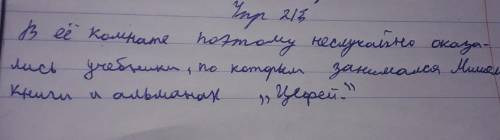 Упр 213
В её комнате поэтому неслучайно оказа-
лись учебники, по которым занимался
книги и альманах „Цефей."